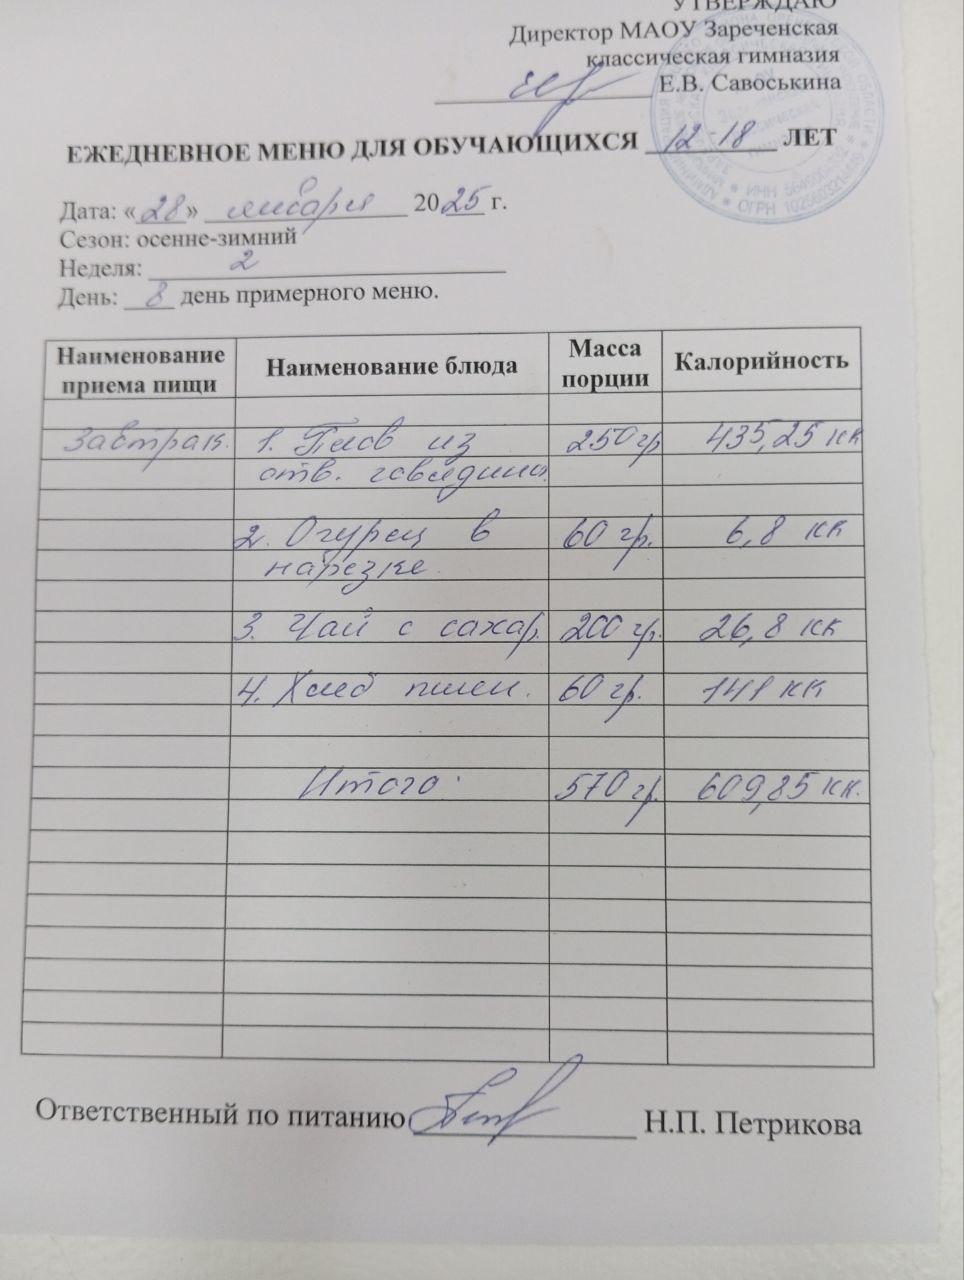 УТВЕРЖДАЮ
Директор МАОУ Зареченская
классическая гимназия
Е.В. Савоськина
ЕЖЕДНЕВНОЕ МЕНЮ ДЛЯ ОБУЧАЮЩИХСЯ 12-18 ЛЕТ
Дата: «28» января 2025 г.
Сезон: осенне-зимний
Неделя: 2
День: 8 день примерного меню.
Наименование приема пищи Наименование блюда Масса порции Калорийность
Завтрак. 1. Плов из 250 гр 435,25 кк
отв. говядины.
2. Огурец в 60 гр. 6,8 кк
нарезке.
3. Чай с сахар. 200 гр. 26,8 кк
4. Хлеб пшен. 60 гр. 141 кк
Итого: 570 гр. 609,85 кк.
Ответственный по питанию Н.П. Петрикова